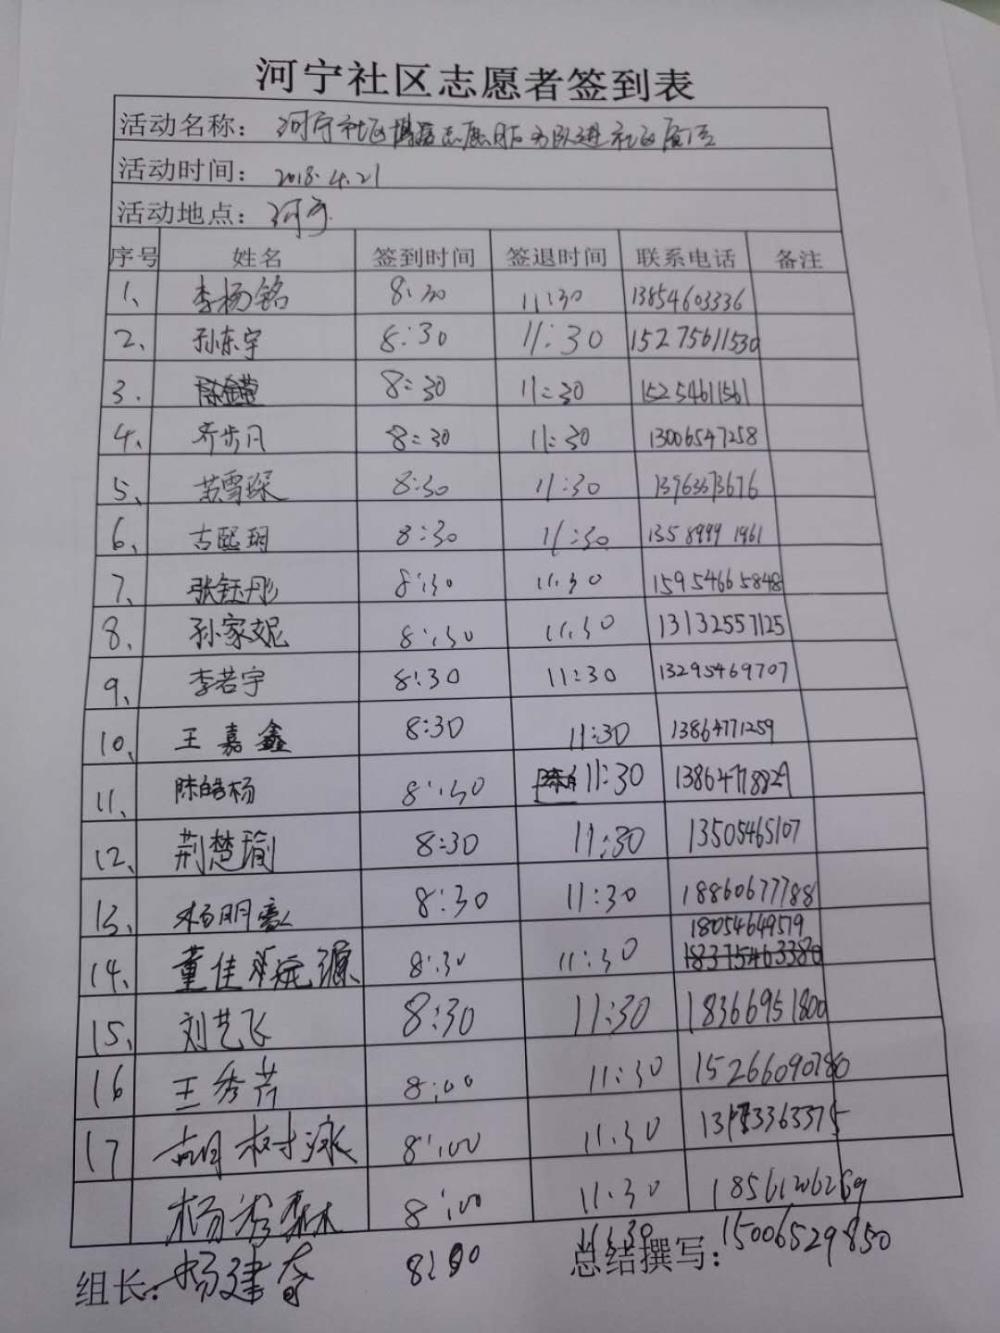 河宁社区志愿者签到表
活动名称: 河宁社区 志愿服务队进社区
活动时间: 2018.4.21
活动地点: 河宁
序号 姓名 签到时间 签退时间 联系电话 备注
1、 李杨铭 8:30 11:30 13854603336
2、 孙东宇 8:30 11:30 15275611530
3. 8:30 11:30 15254611561
4、 齐步凡 8:30 11:30 13006547258
5、 苏雪琛 8:30 11:30 13963373676
6、 古熙玥 8:30 11:30 13589991961
7、 张钰彤 8:30 11:30 15954665848
8、 孙家妮 8:30 11:30 13132557125
9、 李若宇 8:30 11:30 13295469707
10、 王嘉鑫 8:30 11:30 13864771259
11、 陈皓杨 8:30 11:30
12、 荆楚瑜 8:30 11:30 13505465107
13、 杨明 8:30 11:30 18860677788
18054649519
14、 董佳 源 8:30 11:30 18375463380
15、 刘艺飞 8:30 11:30 18366951800
16 王秀芹 8:00 11:30 15266090780
17 胡树泳 8:00 11:30
杨 森林 8:00 11:30 18561206269
组长: 杨建春 8:00 11:30 总结撰写: 15006529850